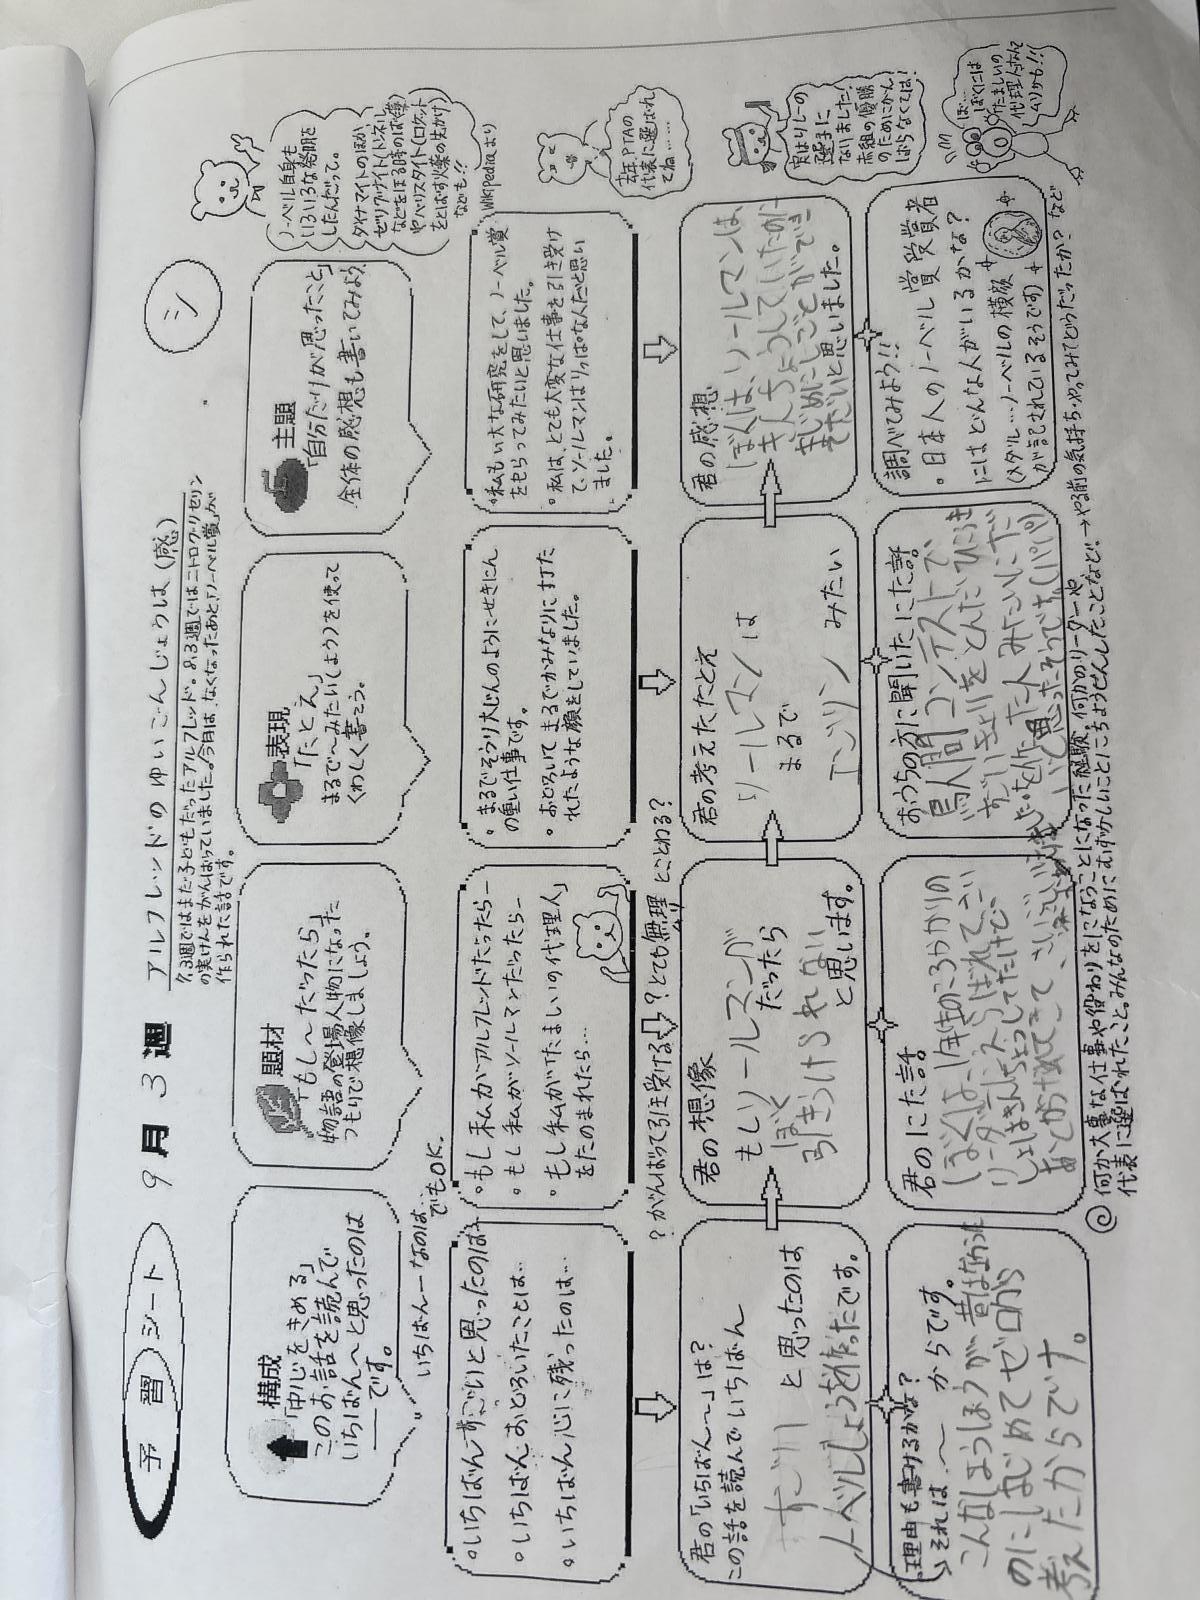 予習シート 9月3週 アルフレッドのゆいごんじょうは(感) シ
7.3週ではまだ子どもだったアルフレッド。8.3週ではニトログリセリン
の実けんをがんばっていました。今月は、なくなったあと、「ノーベル賞」が
作られた話です。
構成
「中心をきめる」
このお話を読んで
いちばん〜と思ったのは
です。
いちばんーなのは…
でもOK.
題材
「もし〜だったら」
物語の登場人物になった
つもりで想像しましょう。
表現
「たとえ」
まるで〜みたい(しょう)を使って
くわしく書こう。
主題
「自分だけが思ったこと」
全体の感想も書いてみよう。
ノーベル自身も
いろいろな発明を
したんだって。
ダイナマイトのほか
ゼリグナイト(トンネル
などをほる時のばく薬)
やバリスタイト(ロケット
をとばす火薬の先がけ)
なども!!
Wikipediaより
・いちばんすごいと思ったのは…
・いちばんおどろいたことは…
・いちばん心に残ったのは…
・もし私がアルフレッドだったらー
・もし私がソールマンだったらー
・もし私が「たましいの代理人」
をたのまれたら…
・まるでそうり大じんのようにせきにん
の重い仕事です。
・おどろいてまるでかみなりに打た
れたような顔をしていました。
・私もい大な研究をして、ノーベル賞
をもらってみたいと思いました。
・私は、とても大変な仕事を引き受け
て、ソールマンはりっぱな人だと思い
ました。
去年PTAの
代表に選ばれ
てね……
?がんばって引き受ける ?とても無理 とことわる?
君の「いちばん〜」は?
この話を読んでいちばん
すごい と思ったのは
ノーベルしょうを作ったです。
君の想像
もしリールスマンが
ぼく だったら
引きうけられない
と思います。
君の考えたたとえ
リールスマン は
まるで
エンジン みたい
君の感想
ぼくは、リールマンは、
きんちょうしていたのに
まじめにしごとができて
すごいと思いました。
実はリレーの
選手に
なりました!
赤組の優勝
のためにがん
ばらなくては!
理由も書けるかな?
それは、〜からです。
こんなしょうほうが昔はなかった
のにはじめてゼロから
考えたからです。
君のにた話。
ぼくは、1年生のころ
おうちの方に聞いたにた話。
鳥人間コンテストで、
すごいきょりをとんだひこうき
調べてみよう!!
・日本人のノーベル賞受賞者
にはどんな人がいるかな?
(メダル…ノーベルの横顔
が記されているそうです)
ぼ…
ぼくには
たましいの
代理人なんて
ムリかも!!
◎何か大事な仕事や役わりをになうことになった経験。何かのリーダーや
代表に選ばれたこと。みんなのためにむずかしいことにちょうせんしたことなど!!→やる前の気持ち・やってみてどうだったか?など